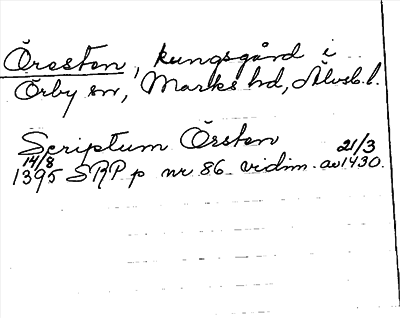 Öresten, kungsgård i
Örby sn, Marks hd, Älvsb. l.
Scriptum Örsten
14/8 21/3
1395 SRP p nr 86 vidim. av 1430.